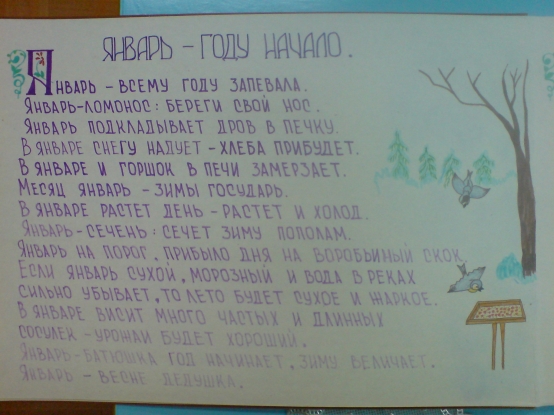 ЯНВАРЬ – ГОДУ НАЧАЛО.
ЯНВАРЬ – ВСЕМУ ГОДУ ЗАПЕВАЛА.
ЯНВАРЬ-ЛОМОНОС: БЕРЕГИ СВОЙ НОС.
ЯНВАРЬ ПОДКЛАДЫВАЕТ ДРОВ В ПЕЧКУ.
В ЯНВАРЕ СНЕГУ НАДУЕТ – ХЛЕБА ПРИБУДЕТ.
В ЯНВАРЕ И ГОРШОК В ПЕЧИ ЗАМЕРЗАЕТ.
МЕСЯЦ ЯНВАРЬ – ЗИМЫ ГОСУДАРЬ.
В ЯНВАРЕ РАСТЕТ ДЕНЬ – РАСТЕТ И ХОЛОД.
ЯНВАРЬ-СЕЧЕНЬ: СЕЧЕТ ЗИМУ ПОПОЛАМ.
ЯНВАРЬ НА ПОРОГ, ПРИБЫЛО ДНЯ НА ВОРОБЬИНЫЙ СКОК.
ЕСЛИ ЯНВАРЬ СУХОЙ, МОРОЗНЫЙ И ВОДА В РЕКАХ
СИЛЬНО УБЫВАЕТ, ТО ЛЕТО БУДЕТ СУХОЕ И ЖАРКОЕ.
В ЯНВАРЕ ВИСИТ МНОГО ЧАСТЫХ И ДЛИННЫХ
СОСУЛЕК – УРОЖАЙ БУДЕТ ХОРОШИЙ.
ЯНВАРЬ-БАТЮШКА ГОД НАЧИНАЕТ, ЗИМУ ВЕЛИЧАЕТ.
ЯНВАРЬ – ВЕСНЕ ДЕДУШКА.